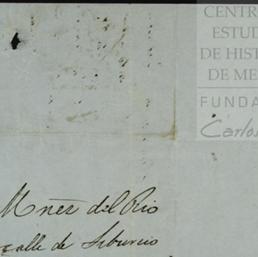 CENTR
ESTUD
DE HIST
DE ME
FUNDA
Carlos
Mñez del Rio
calle de Tiburcio